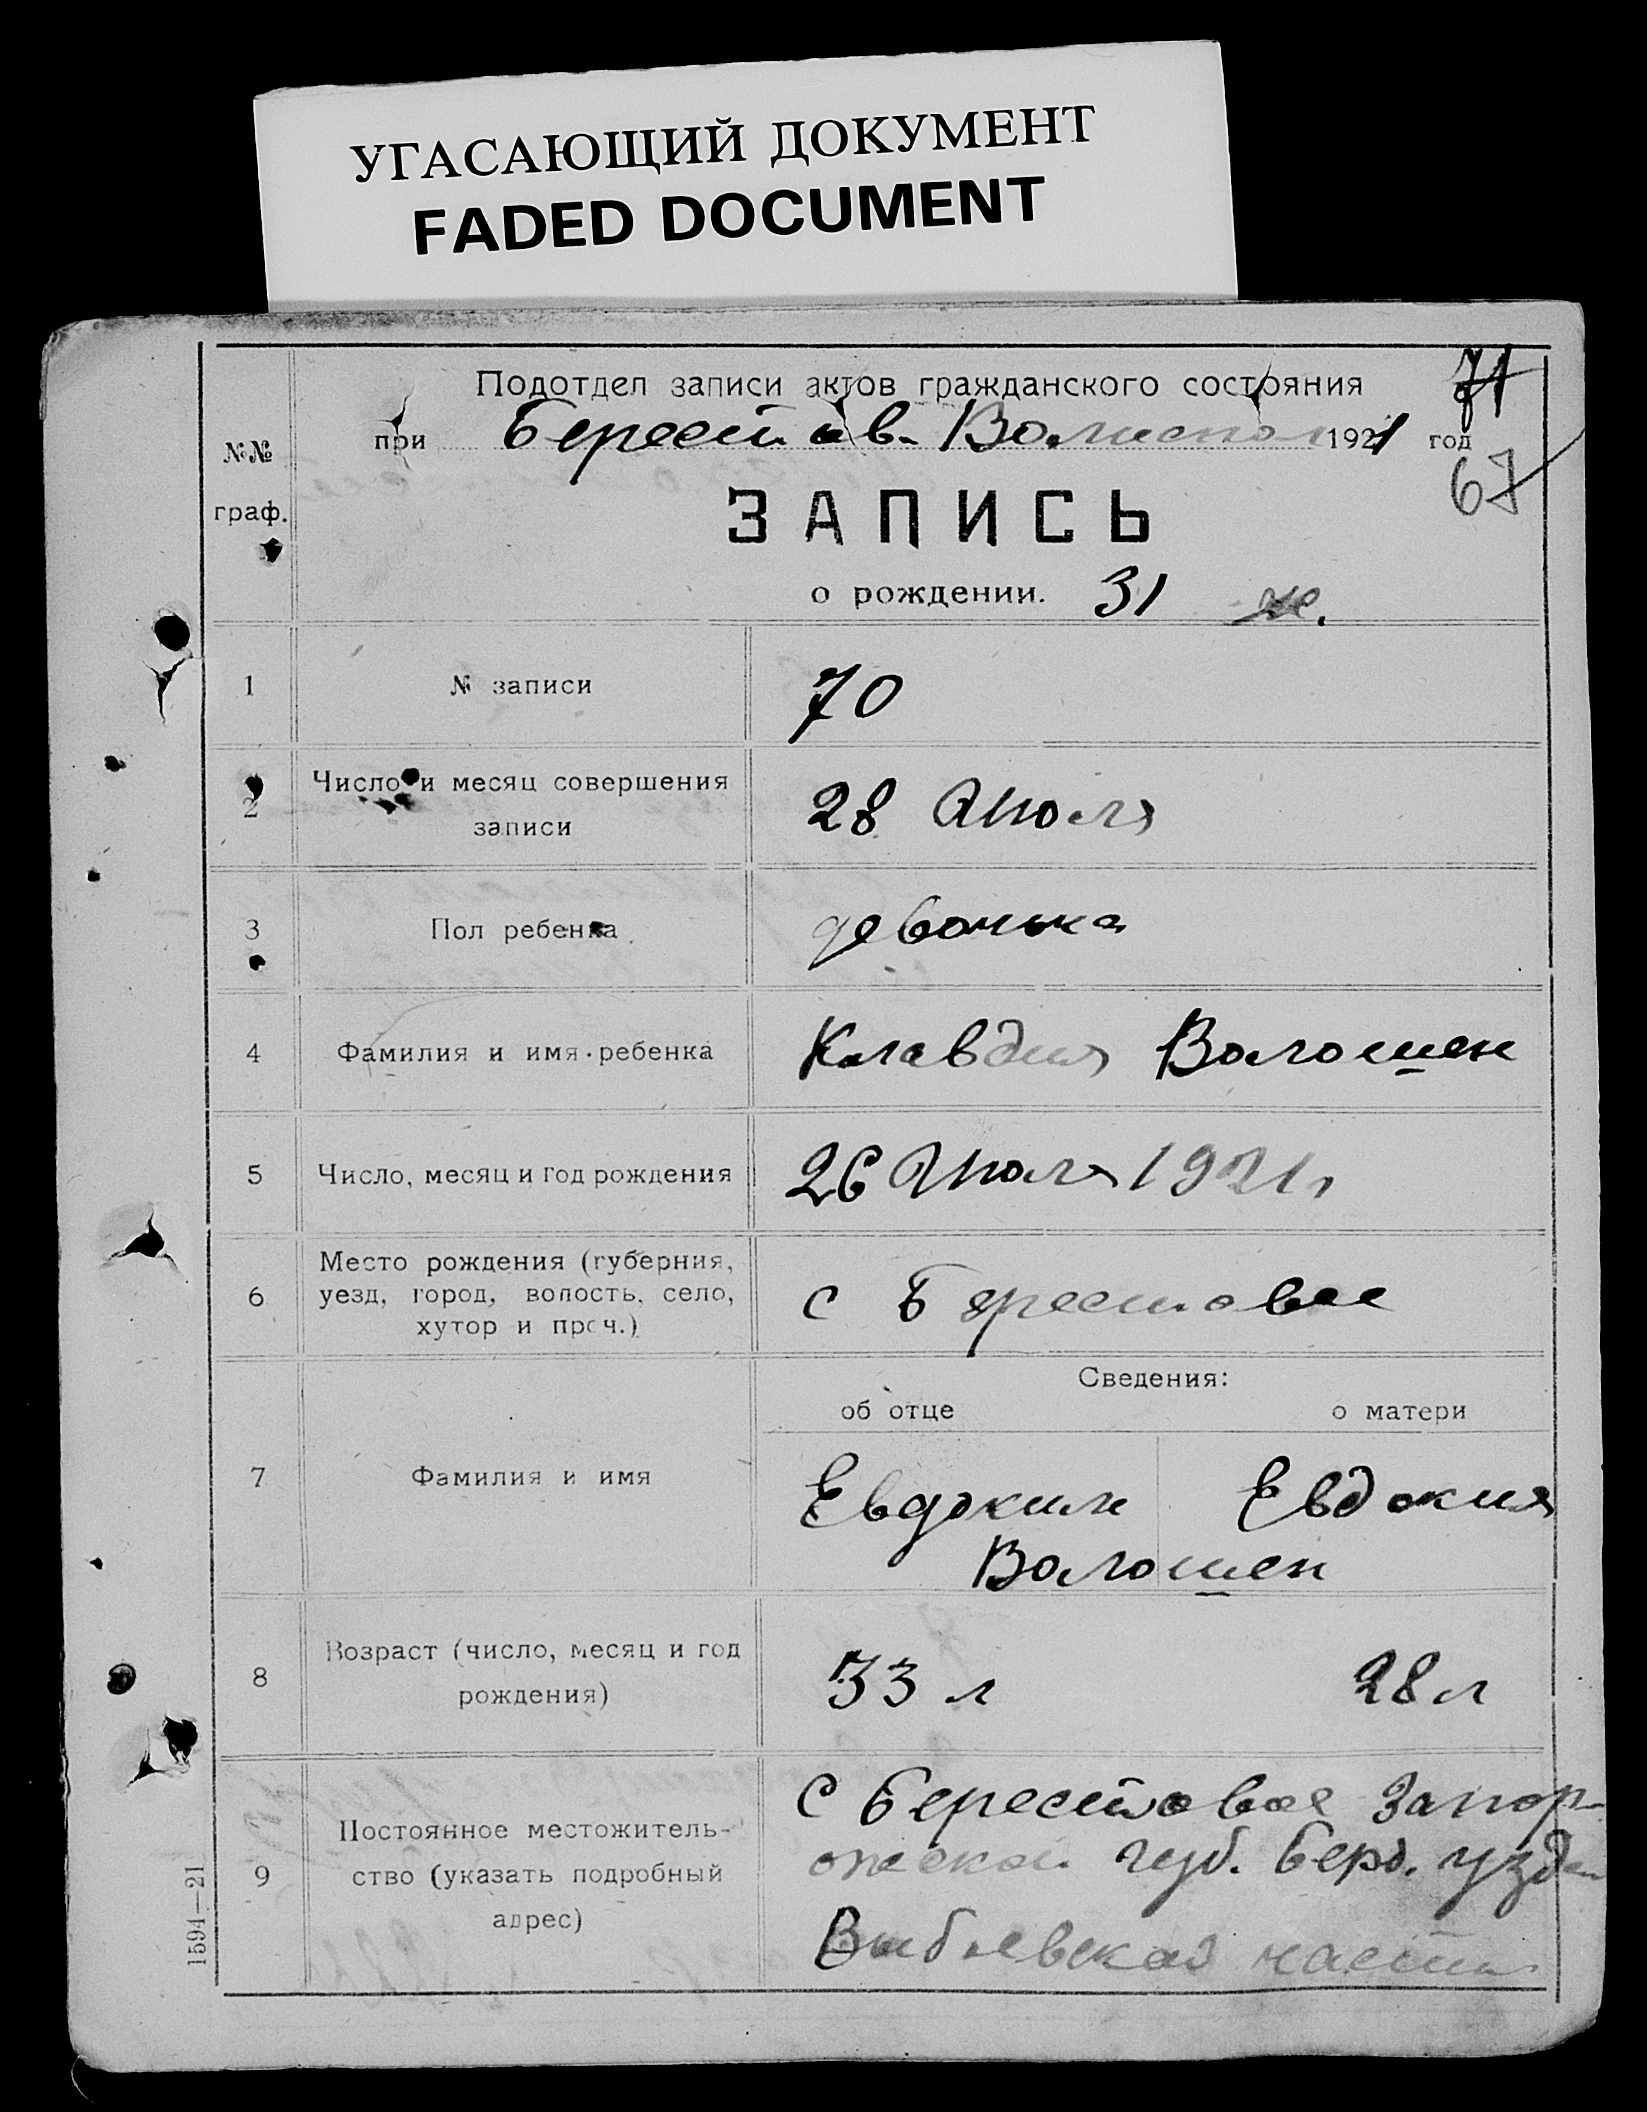 УГАСАЮЩИЙ ДОКУМЕНТ
FADED DOCUMENT
Подотдел записи актов гражданского состояния
71
при Берестов. Волиспол 1921 год
67
№№ граф.
ЗАПИСЬ
о рождении. 31 ж.
1 № записи 70
2 Число и месяц совершения
записи
28 Июля
3 Пол ребенка девочька
4 Фамилия и имя ребенка Клавдия Волошен
5 Число, месяц и год рождения 26 Июля 1921 г
6 Место рождения (губерния,
уезд, город, волость, село,
хутор и проч.)
с Берестовое
Сведения:
об отце о матери
7 Фамилия и имя Евдоким Евдокия
Волошен
8 Возраст (число, месяц и год
рождения)
33 л 28 л
9 Постоянное местожитель-
ство (указать подробный
адрес)
С Берестовое Запор-
ожской губ. Берд. узда
части
1594—21